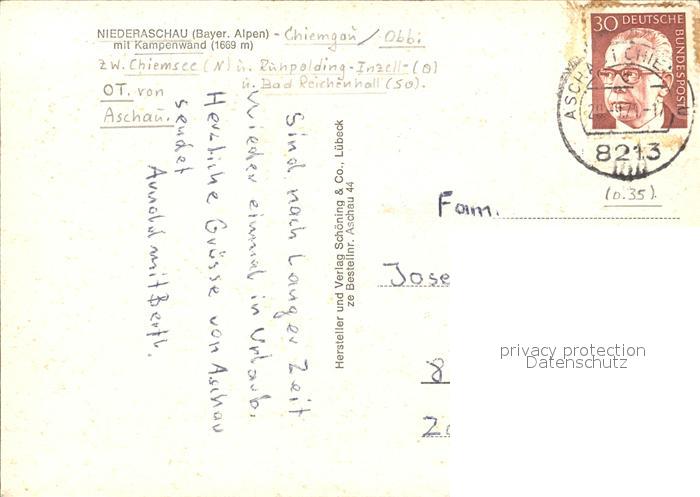 NIEDERASCHAU (Bayer. Alpen) - Chiemgau / Obb.
mit Kampenwand (1669 m)
zw. Chiemsee (N) u. Ruhpolding-Inzell-(O)
OT. von u. Bad Reichenhall (SO).
Aschau.
30 DEUTSCHE
BUNDESPOST
ASCHAU I CHIEMG
8213
(0.35).
Sind nach langer Zeit
wieder einmal in Urlaub.
Herzliche Grüsse von Aschau
sendet
Arnold mit Berth.
Hersteller und Verlag Schöning & Co., Lübeck
ze Bestellnr. Aschau 44
Fam.
Jose
8
privacy protection
Datenschutz